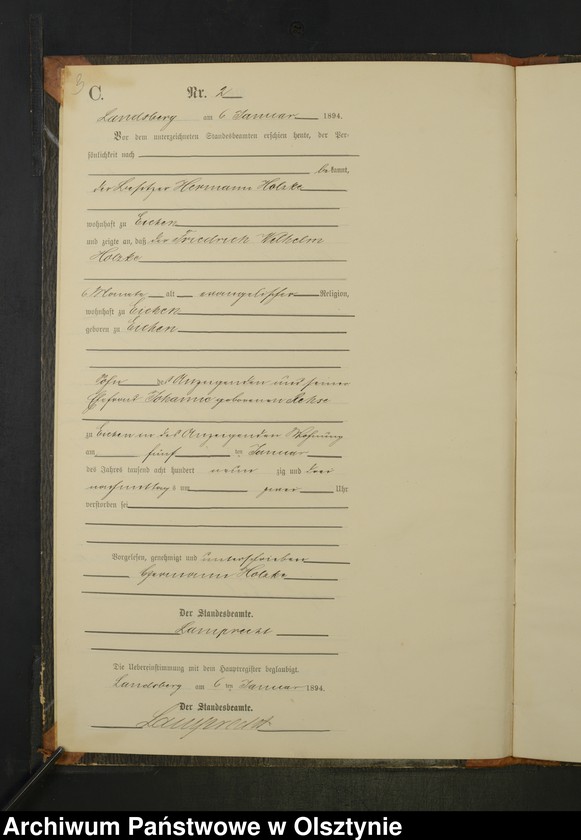 3
C. Nr. 2
Landsberg am 6 Januar 1894.
Vor dem unterzeichneten Standesbeamten erschien heute, der Per-
sönlichkeit nach
be kannt,
der Besitzer Hermann Holzke
wohnhaft zu
und zeigte an, daß der Friedrich Wilhelm
Holzke
6 Monate alt evangelischer Religion,
wohnhaft zu
geboren zu
Sohn des Anzeigenden und seiner
Ehefrau Johanne geborenen
zu des Anzeigenden Wohnung
am fünf ten Januar
des Jahres tausend acht hundert neun zig und
nachmittags um Uhr
verstorben sei
Vorgelesen, genehmigt und unterschrieben
Hermann Holzke
Der Standesbeamte.
Lamprecht
Die Uebereinstimmung mit dem Hauptregister beglaubigt.
Landsberg am 6 ten Januar 1894.
Der Standesbeamte.
Lamprecht
Archiwum Państwowe w Olsztynie